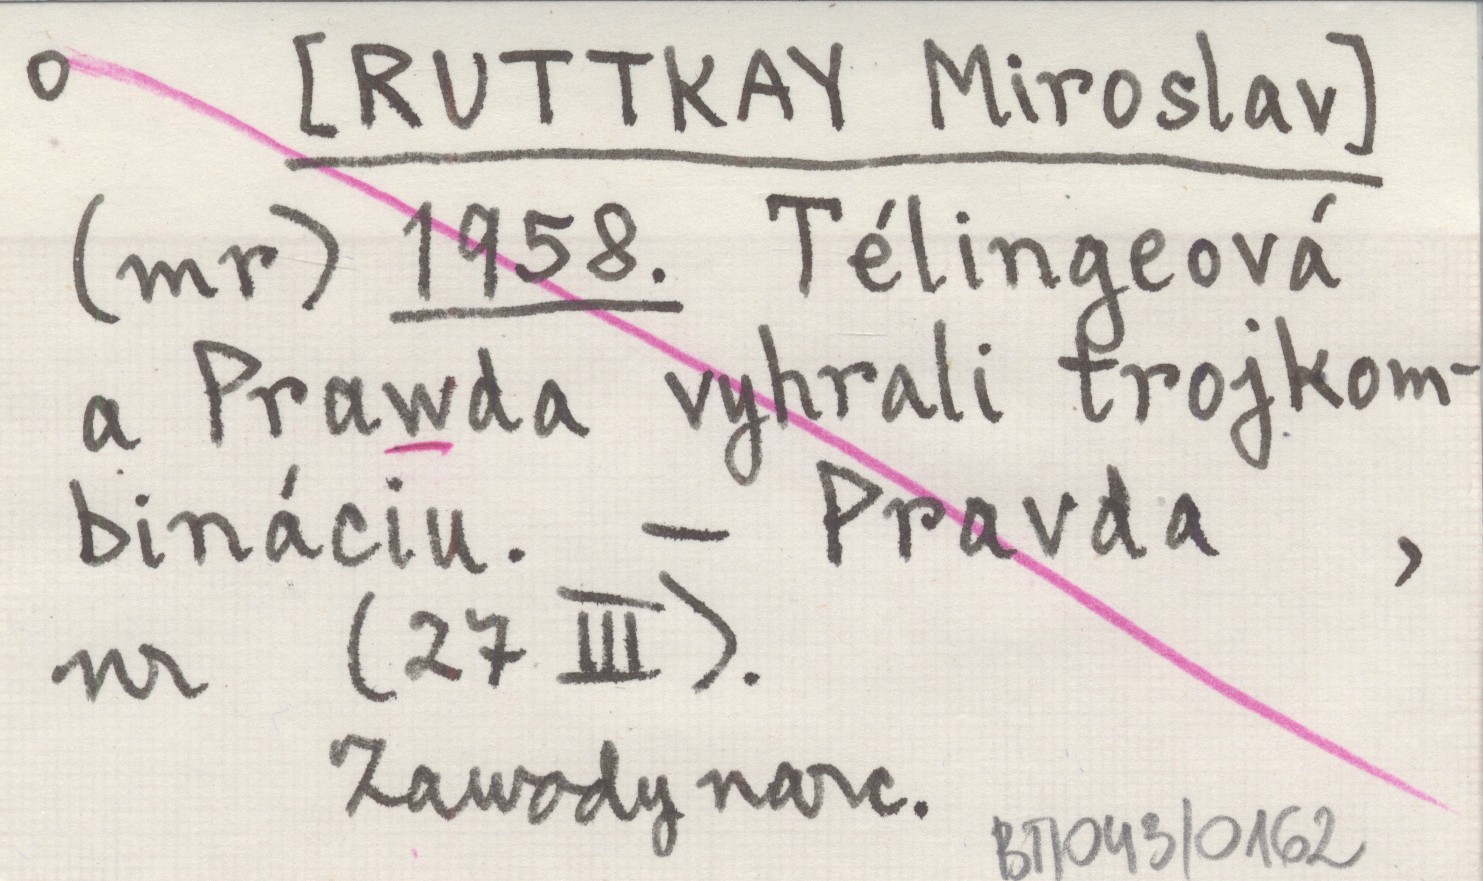 o [RUTTKAY Miroslav]
(mr) 1958. Télingeová
a Prawda vyhrali trojkom-
bináciu. – Pravda ,
nr (27 III).
Zawody narc.
BT/043/0162